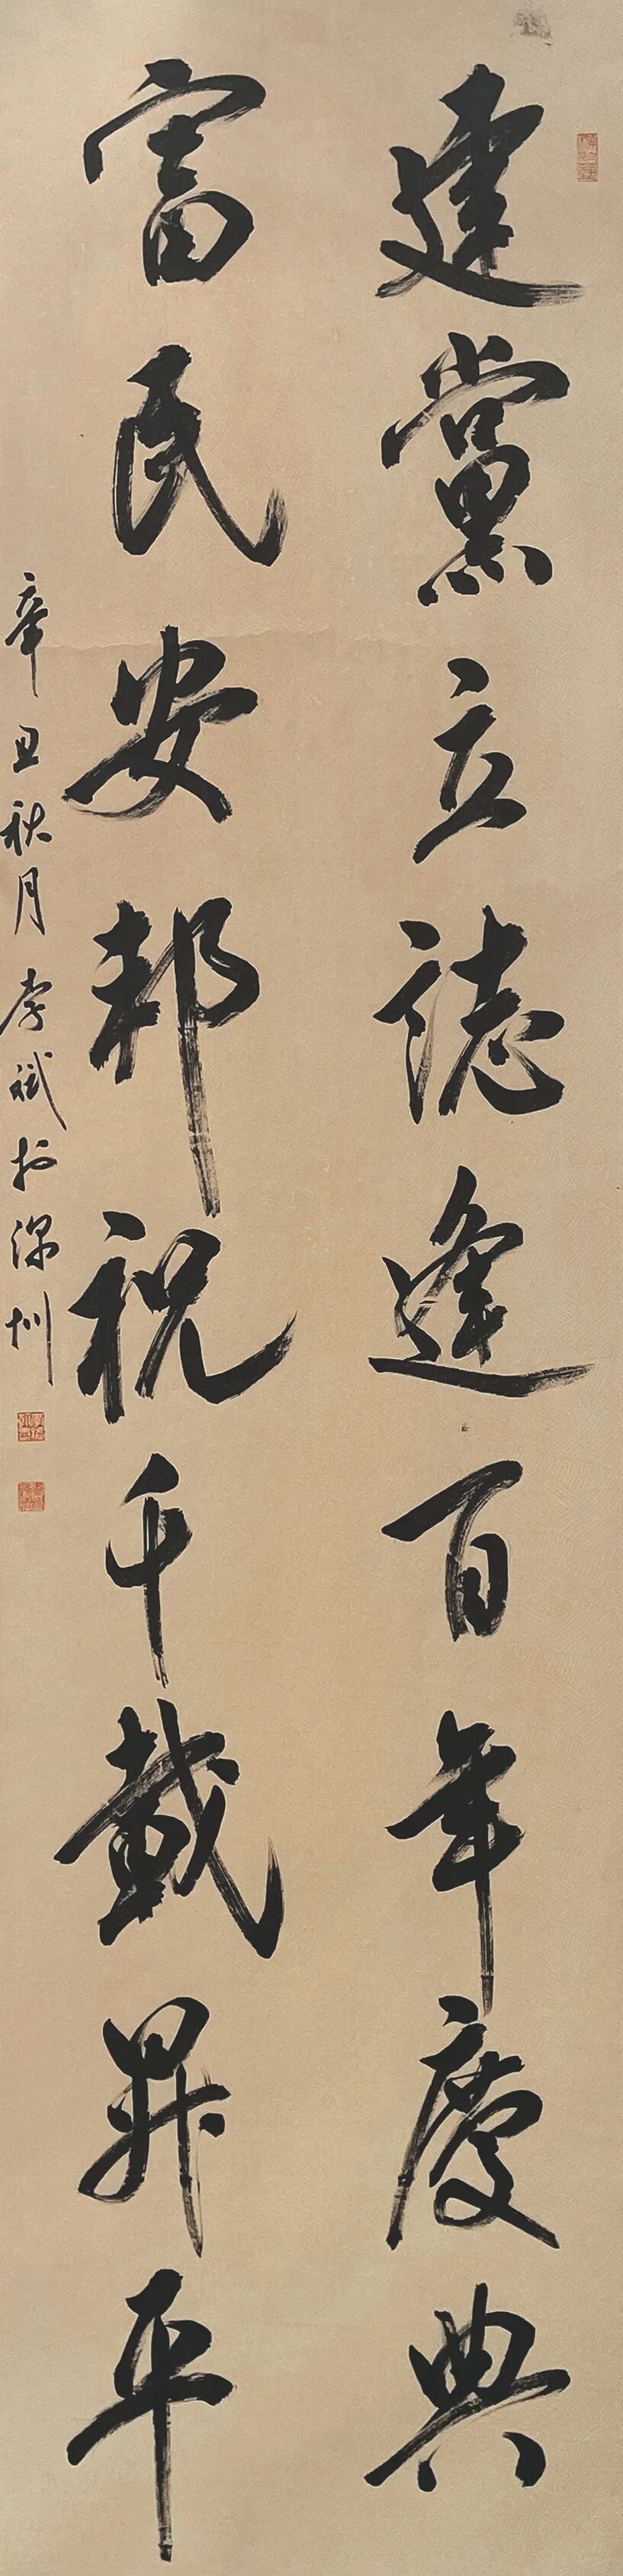 建黨立誌逢百年慶典
富民安邦祝千載昇平
辛丑秋月李斌於深圳